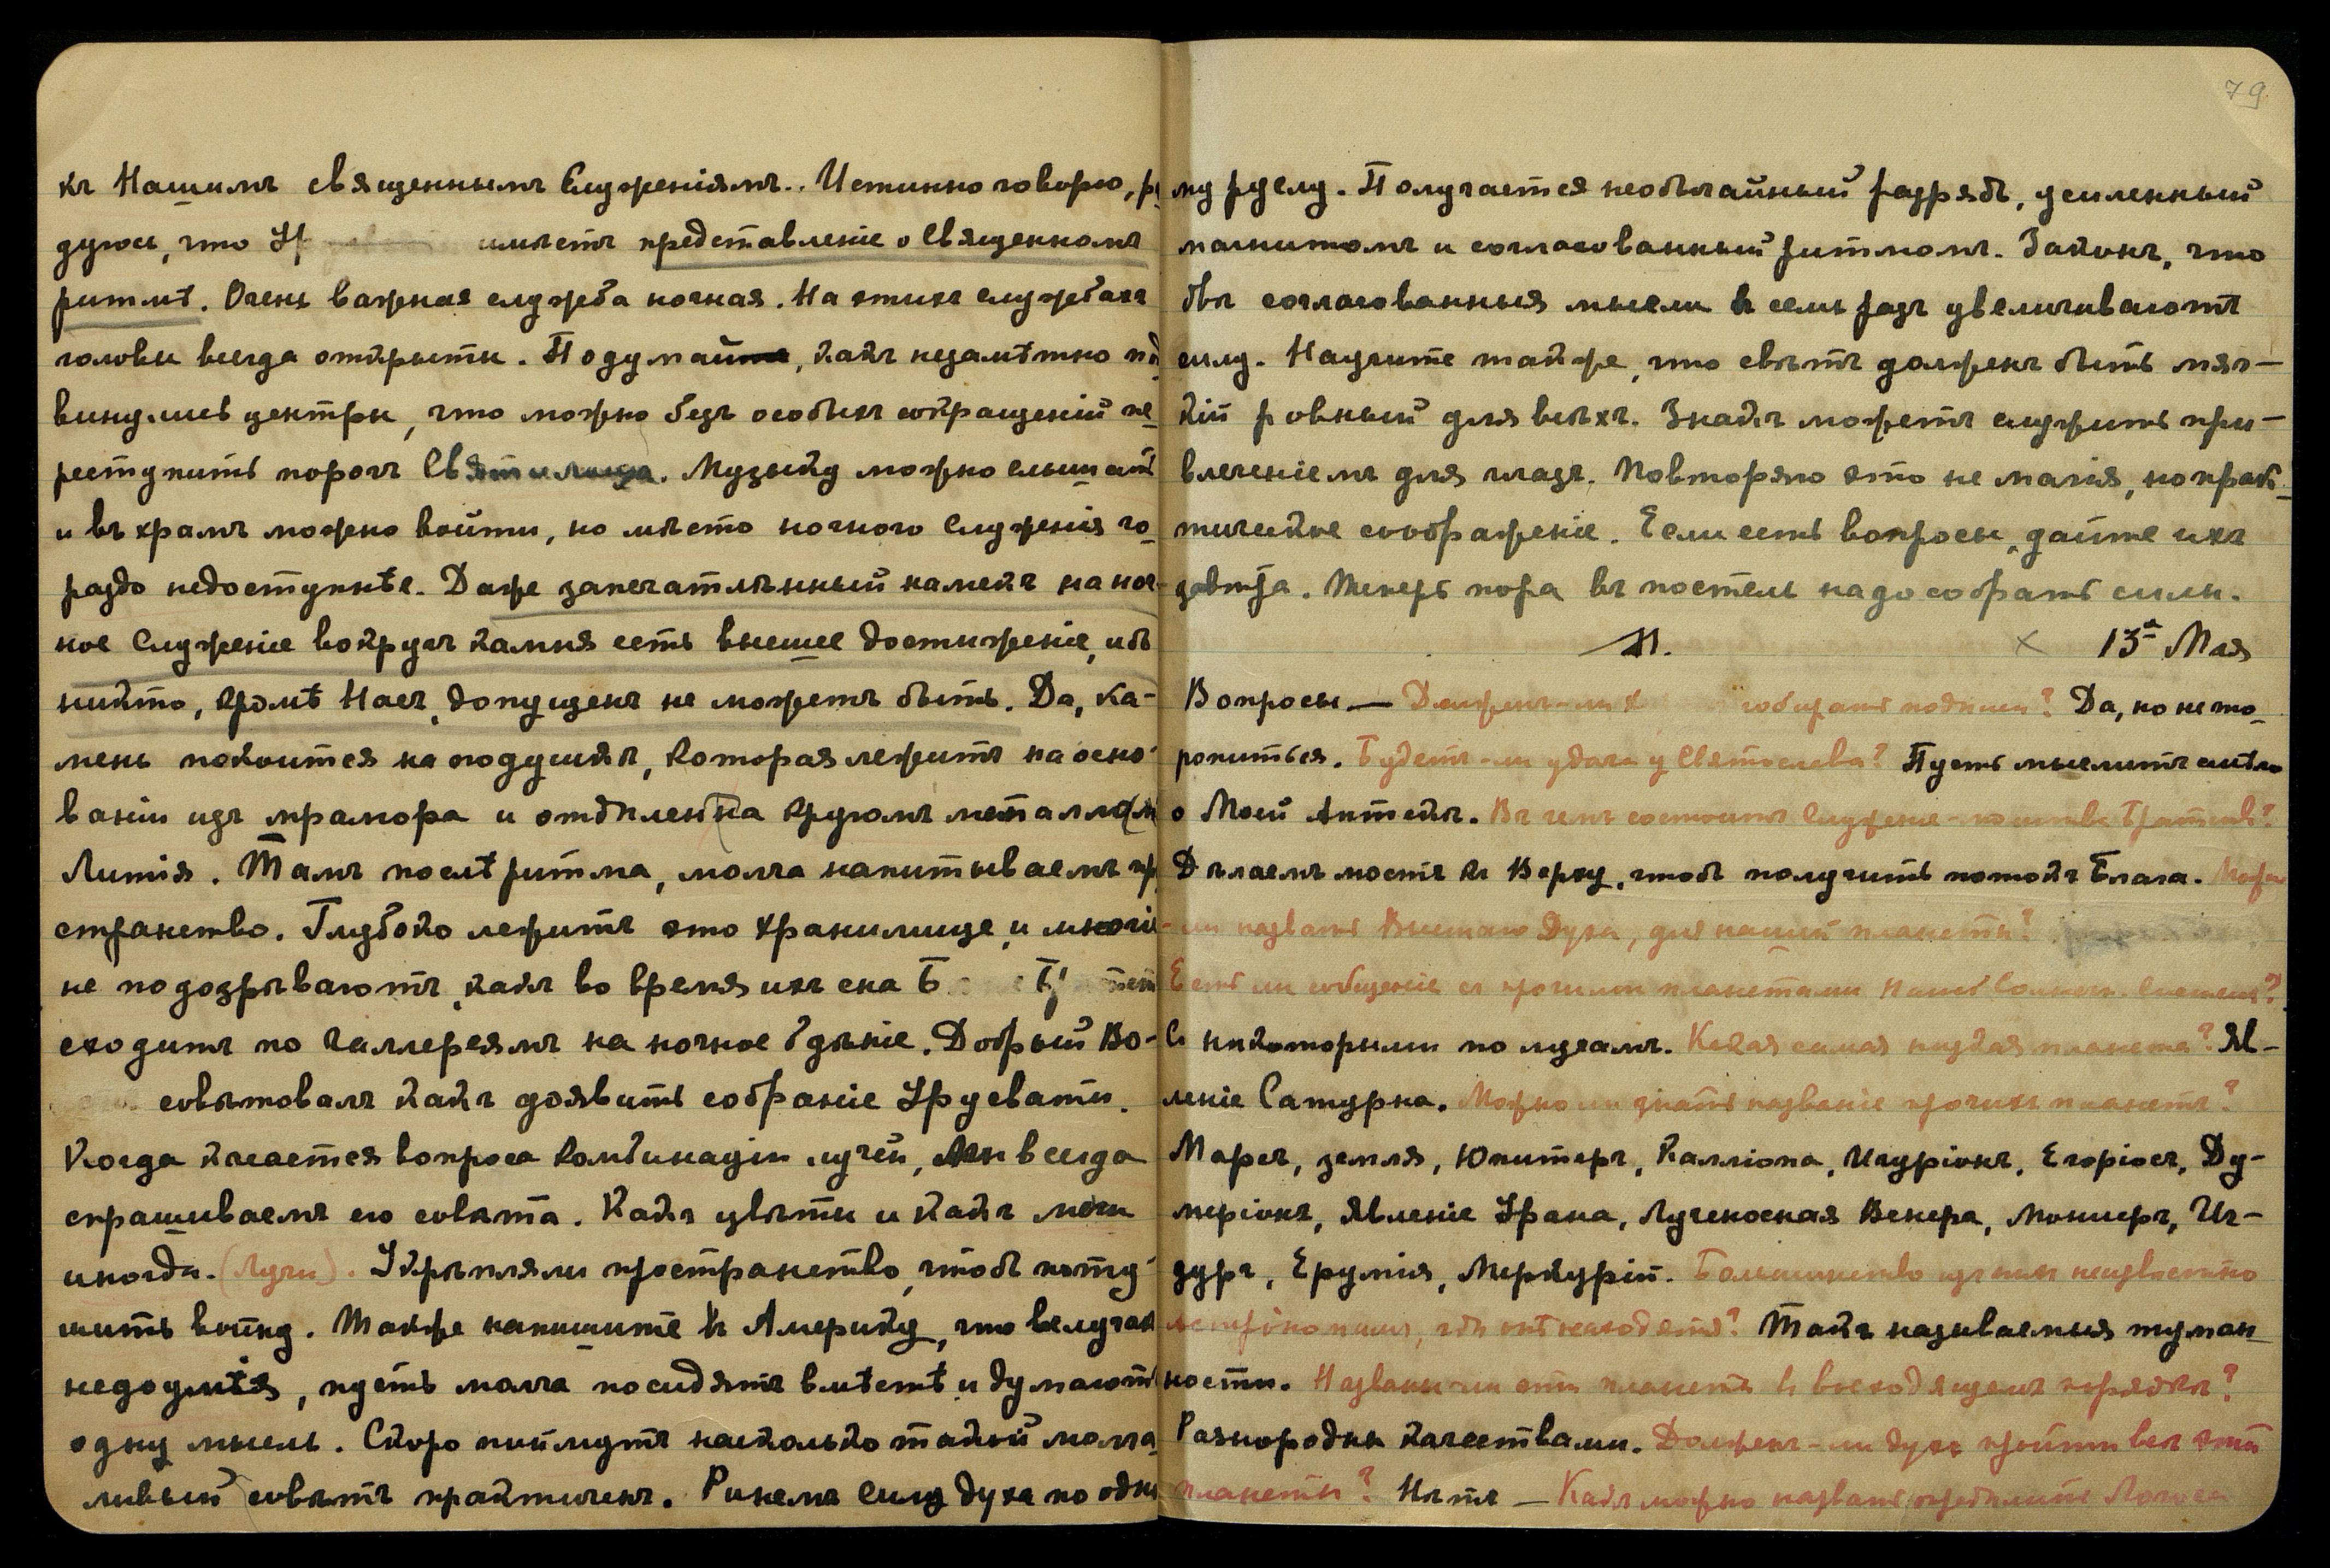 къ Нашимъ священнымъ Служеніямъ.. Истинно говорю, ра
дуюсь, что Ур имѣетъ представленіе о Священномъ
ритмѣ. Очень важная служба ночная. На этихъ службахъ
головы всегда открыты. Подумай, какъ незамѣтно под
винулись центры, что можно безъ особыхъ сокращеній пе
реступить порогъ Святилища. Музыку можно слышать
и въ храмъ можно войти, но мѣсто ночного Служенія го
раздо недоступнѣе. Даже запечатлѣнный намекъ на ноч-
ное Служеніе вокругъ камня есть высшее достиженіе, ибо
никто, кромѣ Насъ, допущенъ не можетъ быть. Да, ка-
мень покоится на подушкѣ, которая лежитъ на осно-
ваніи изъ мрамора и отдѣлена кругомъ металла
Литія. Тамъ послѣ ритма, молча напитываемъ пр
странство. Глубоко лежитъ это хранилище, и многіе
не подозрѣваютъ, какъ во время ихъ сна Б
сходитъ по галлереямъ на ночное бдѣніе. Добрый Во-
совѣтовалъ какъ доявить собраніе Урусвати.
Когда касается вопроса комбинаціи лучей, Мы всегда
спрашиваемъ его совѣта. Какъ цвѣты и какъ мечи
иногда. (Лучи). Укрѣпляли пространство, чтобъ поту-
шить войну. Также напишите въ Америку, что въ случаѣ
недоумѣнія, пусть молча посидятъ вмѣстѣ и думаютъ
одну мысль. Скоро поймутъ насколько такой молча
ливый совѣтъ практиченъ. Ринемъ силу духа по одно

79.
му руслу. Получается необычайный разрядъ, усиленный
магнитомъ и согласованный ритмомъ. Законъ, что
двѣ согласованныя мысли въ семь разъ увеличиваютъ
силу. Научите также, что свѣтъ долженъ быть мяг-
кій ровный для всѣхъ. Знакъ можетъ служить при-
влеченіемъ для глазъ. Повторяю это не магія, но прак-
тическое соображеніе. Если есть вопросы, дайте ихъ
завтра. Теперь пора въ постель надо собрать силы.
М. × 13ᵃ Мая
Вопросы — Долженъ-ли собирать подписи? Да, но не то
ропиться. Будетъ-ли удача у Святослава? Пусть мыслитъ смѣло
о Моей Аптекѣ. Въ чемъ состоитъ Служеніе Братьевъ?
Дѣлаемъ мостъ къ Верху, чтобъ получить потокъ Блага. Можно
-ли назвать Высшаго Духа, для нашей планеты?
Есть ли сообщеніе съ прочими планетами Нашей Солнечн. Системы?
Съ нѣкоторыми по лучамъ. Какая самая низкая планета? Яв-
леніе Сатурна. Можно ли знать названіе прочихъ планетъ?
Марсъ, земля, Юпитеръ, Калліопа, Игуріонъ, Егоріосъ, Ду-
меріонъ, Явленіе Урана, Лученосная Венера, Моншеръ, Иг-
дуръ, Ерумія, Меркурій. Большинство изъ нихъ неизвѣстно
астрономамъ, гдѣ онѣ находятся? Такъ называемыя туман
ности. Названы-ли эти планеты въ восходящемъ порядкѣ?
Разнородны качествами. Долженъ-ли духъ пройти всѣ эти
планеты? Нѣтъ — Какъ можно назвать Логоса